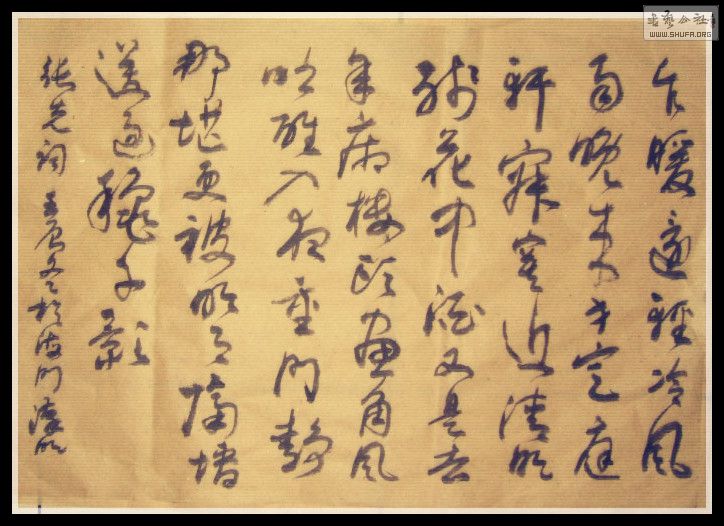 乍暖還輕冷風
雨晚来方定庭
軒寂寞近清明
残花中酒又是去
年病樓頭畫角風
吹醒入夜重門静
那堪更被明月隔墙
送過龝千影
張先詞 壬辰冬於海門
书艺公社
WWW.SHUFA.ORG